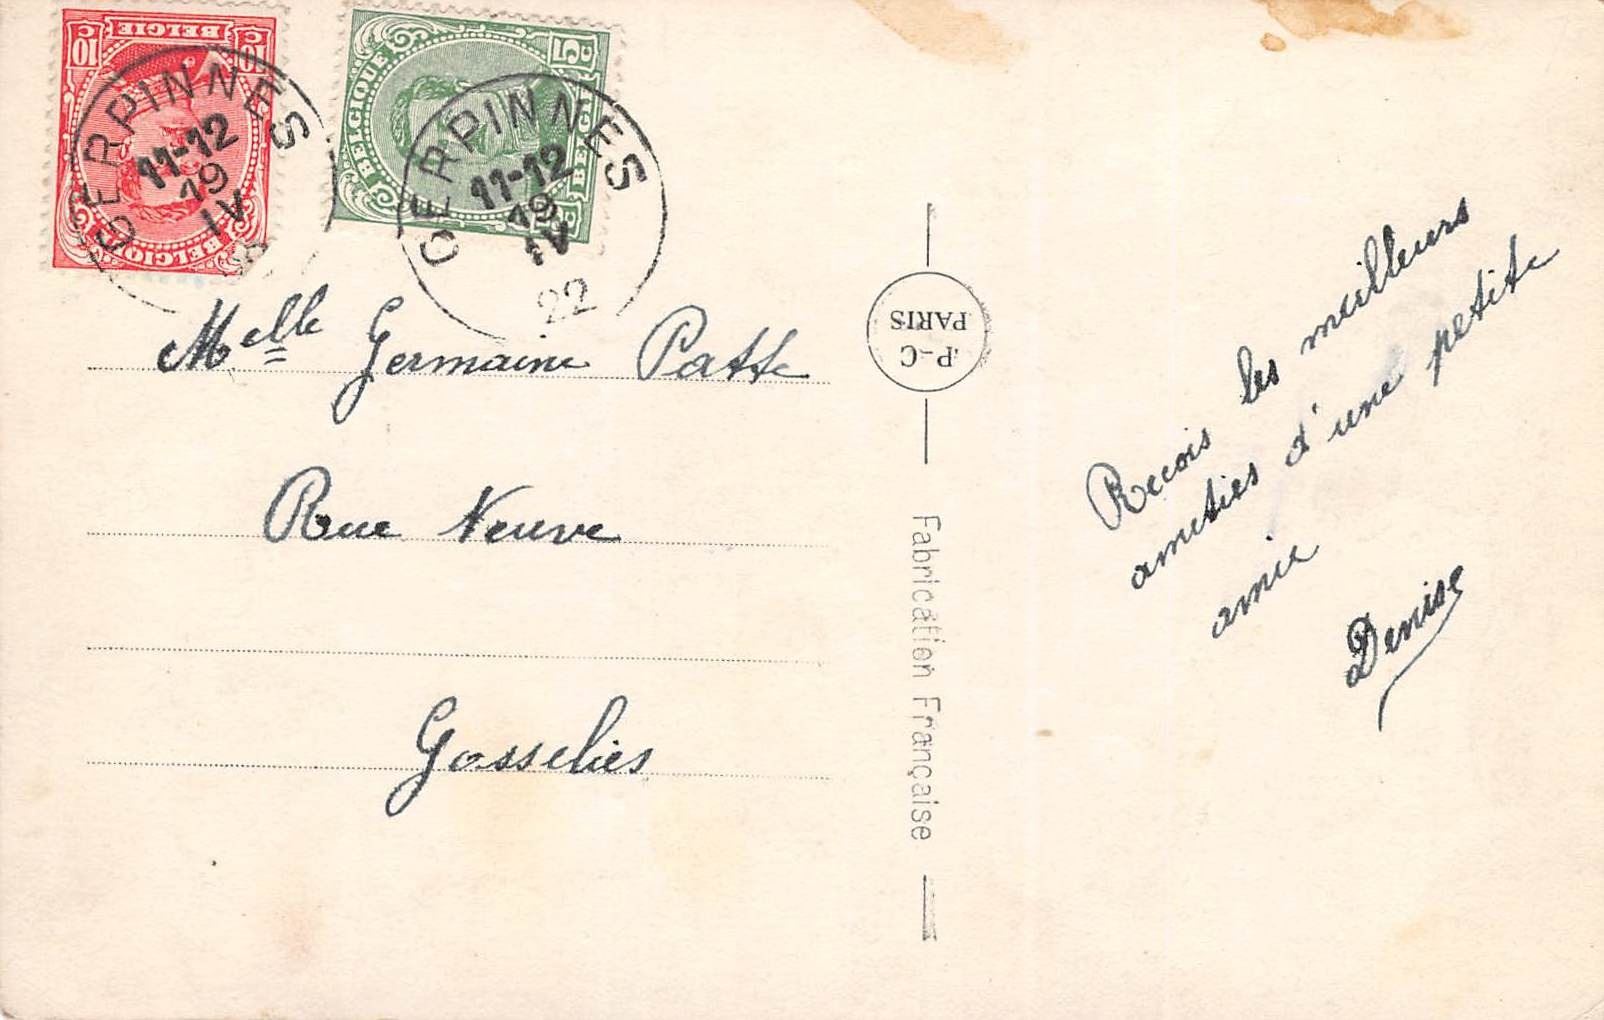 10 C BELGIE 10 C
BELGIQUE
BELGIQUE 5 C
BELGIË C
GERPINNES
11-12
19
IV
GERPINNES
11-12
19
IV
22
Melle Germaine Patte
Rue Neuve
Gosselies
P-C
PARIS
Fabrication Française
Recois les meilleurs
amitiés d'une petite
amie
Denise